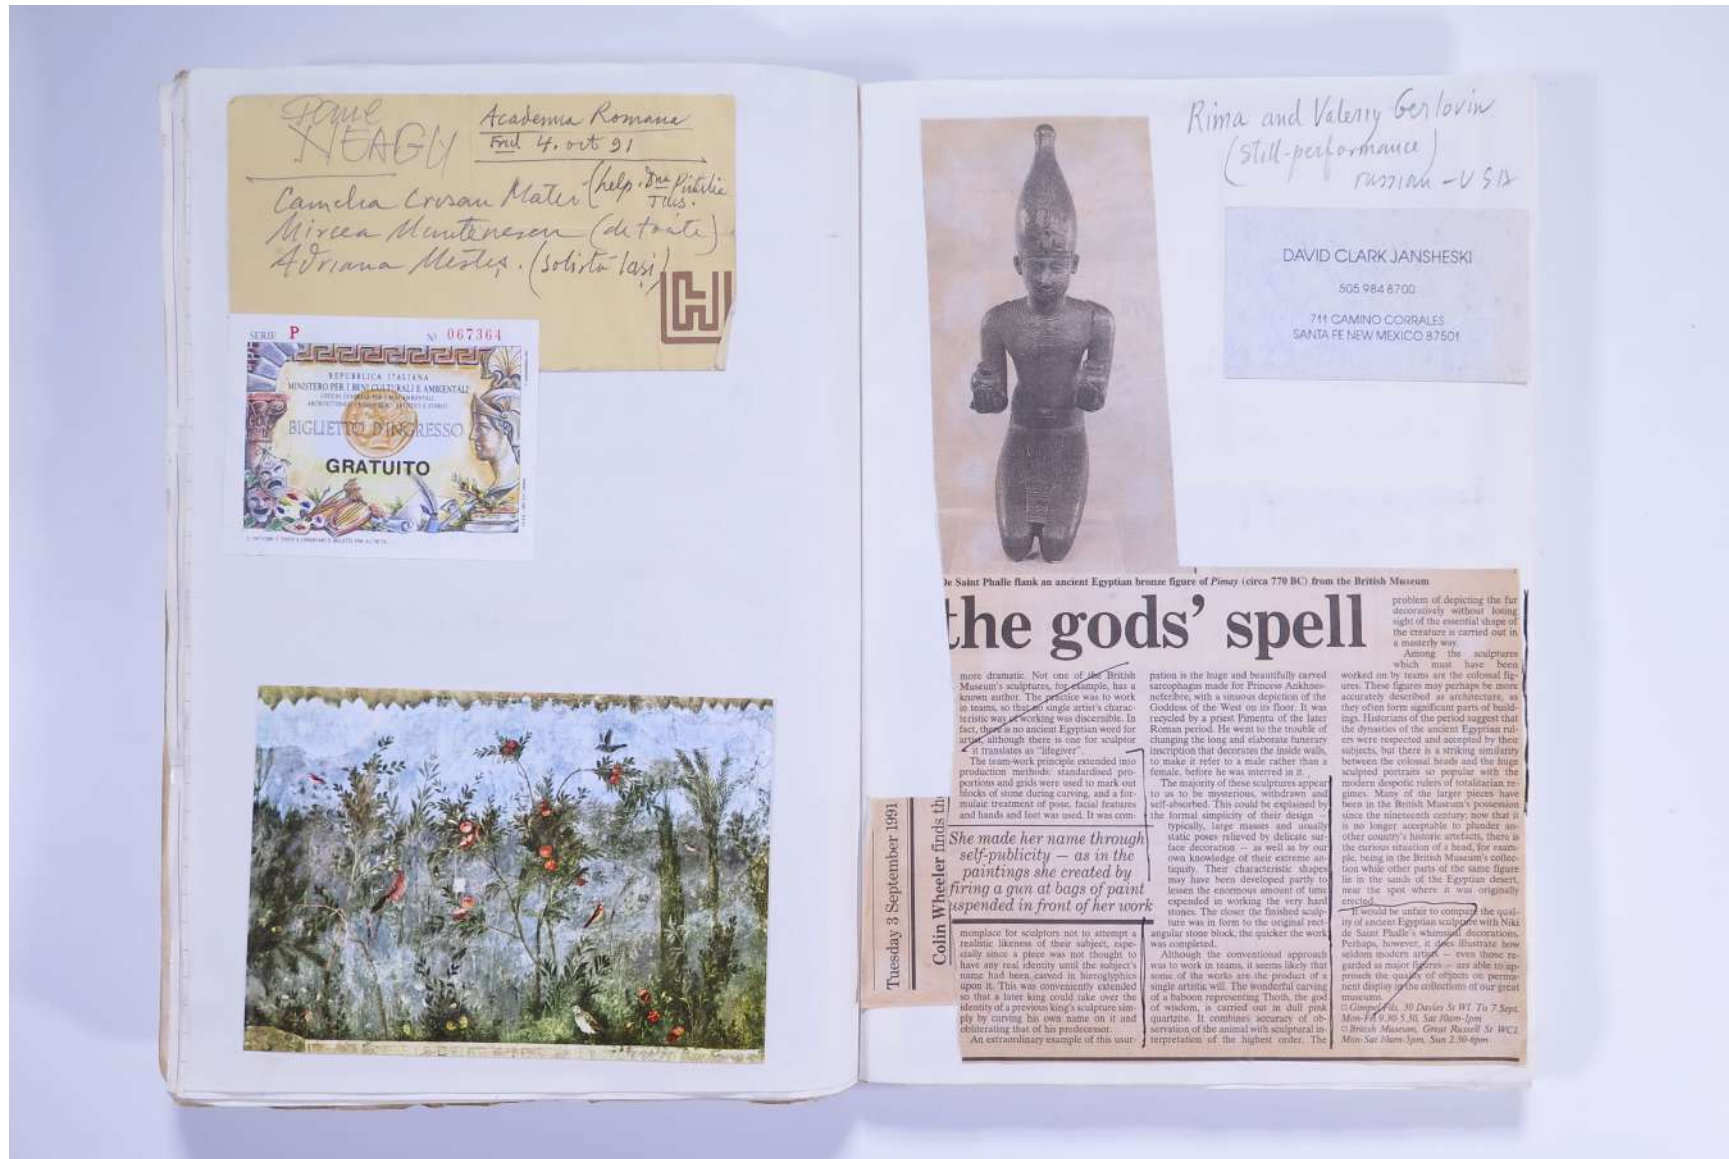 Paul
NEAGU
Academia Romana
4. oct 91
Camelia Crisan Matei (help.
Mircea Munteanescu (de toate)
Adriana Mesteș. (solistă Iași)
SERIE P
Nº 067364
REPUBBLICA ITALIANA
MINISTERO PER I BENI CULTURALI E AMBIENTALI
BIGLIETTO D'INGRESSO
GRATUITO
Rima and Valeriy Gerlovin
(still-performance)
russian - USA
DAVID CLARK JANSHESKI
505 984 8700
711 CAMINO CORRALES
SANTA FE NEW MEXICO 87501
De Saint Phalle flank an ancient Egyptian bronze figure of Pimay (circa 770 BC) from the British Museum
the gods' spell
Tuesday 3 September 1991
Colin Wheeler finds th
more dramatic. Not one of the British
Museum's sculptures, for example, has a
known author. The practice was to work
in teams, so that no single artist's charac-
teristic way of working was discernible. In
fact, there is no ancient Egyptian word for
artist, although there is one for sculptor
it translates as "lifegiver".
The team-work principle extended into
production methods: standardised pro-
portions and grids were used to mark out
blocks of stone during carving, and a for-
mulaic treatment of pose, facial features
and hands and feet was used. It was com-
She made her name through
self-publicity — as in the
paintings she created by
firing a gun at bags of paint
uspended in front of her work
monplace for sculptors not to attempt a
realistic likeness of their subject, espe-
cially since a piece was not thought to
have any real identity until the subject's
name had been carved in hieroglyphics
upon it. This was conveniently extended
so that a later king could take over the
identity of a previous king's sculpture sim-
ply by carving his own name on it and
obliterating that of his predecessor.
An extraordinary example of this usur-
pation is the huge and beautifully carved
sarcophagus made for Princess Ankhnes-
neferibre, with a sinuous depiction of the
Goddess of the West on its floor. It was
recycled by a priest Pimentu of the later
Roman period. He went to the trouble of
changing the long and elaborate funerary
inscription that decorates the inside walls,
to make it refer to a male rather than a
female, before he was interred in it.
The majority of these sculptures appear
to us to be mysterious, withdrawn and
self-absorbed. This could be explained by
the formal simplicity of their design –
typically, large masses and usually
static poses relieved by delicate sur-
face decoration – as well as by our
own knowledge of their extreme an-
tiquity. Their characteristic shapes
may have been developed partly to
lessen the enormous amount of time
expended in working the very hard
stones. The closer the finished sculp-
ture was in form to the original rect-
angular stone block, the quicker the work
was completed.
Although the conventional approach
was to work in teams, it seems likely that
some of the works are the product of a
single artistic will. The wonderful carving
of a baboon representing Thoth, the god
of wisdom, is carried out in dull pink
quartzite. It combines accuracy of ob-
servation of the animal with sculptural in-
terpretation of the highest order. The
problem of depicting the fur
decoratively without losing
sight of the essential shape of
the creature is carried out in
a masterly way.
Among the sculptures
which must have been
worked on by teams are the colossal fig-
ures. These figures may perhaps be more
accurately described as architecture, as
they often form significant parts of build-
ings. Historians of the period suggest that
the dynasties of the ancient Egyptian rul-
ers were respected and accepted by their
subjects, but there is a striking similarity
between the colossal heads and the huge
sculpted portraits so popular with the
modern despotic rulers of totalitarian re-
gimes. Many of the larger pieces have
been in the British Museum's possession
since the nineteenth century: now that it
is no longer acceptable to plunder an-
other country's historic artefacts, there is
the curious situation of a head, for exam-
ple, being in the British Museum's collec-
tion while other parts of the same figure
lie in the sands of the Egyptian desert,
near the spot where it was originally
erected.
It would be unfair to compare the qual-
ity of ancient Egyptian sculpture with Niki
de Saint Phalle's whimsical decorations.
Perhaps, however, it does illustrate how
seldom modern artists – even those re-
garded as major figures – are able to ap-
proach the quality of objects on perma-
nent display in the collections of our great
museums.
□ Gimpel Fils, 30 Davies St W1. To 7 Sept.
Mon-Fri 9.30-5.30, Sat 10am-1pm
□ British Museum, Great Russell St WC1.
Mon-Sat 10am-5pm, Sun 2.30-6pm